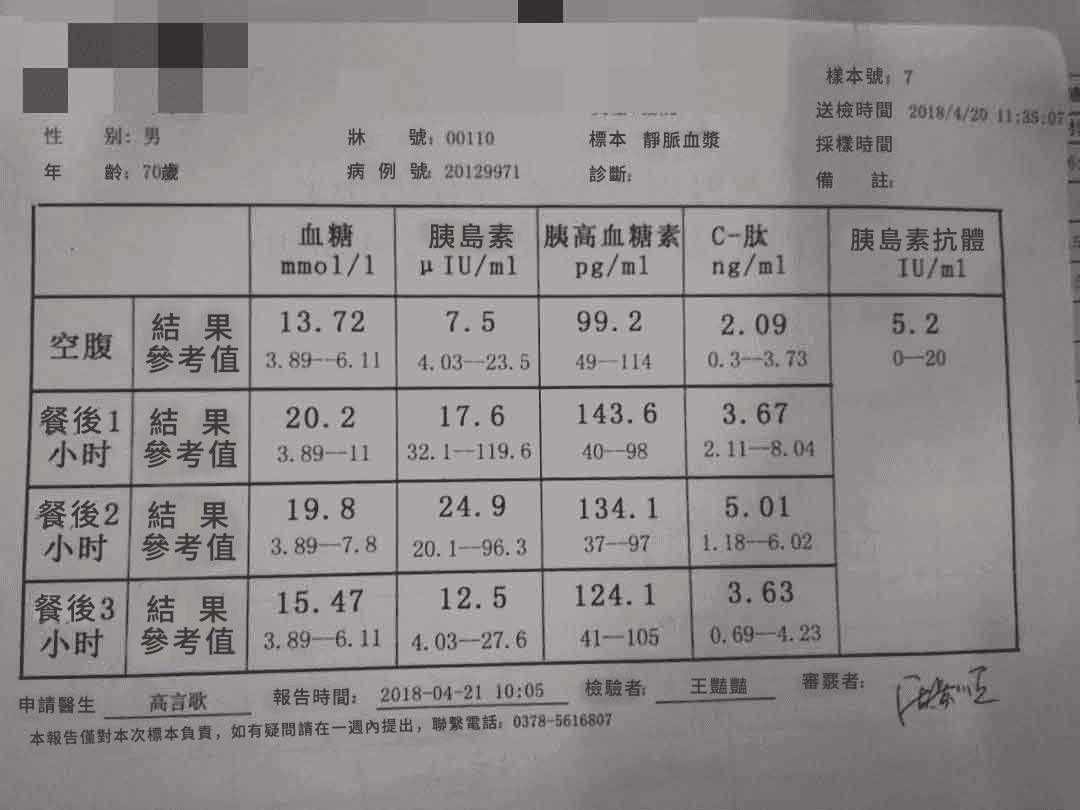 樣本號：7
送檢時間 2018/4/20 11:35:07
性 别：男 牀 號：00110 標本 靜脈血漿 採樣時間
年 齡：70歲 病 例 號 20129971 診斷： 備 註：
血糖 胰島素 胰高血糖素 C-肽 胰島素抗體
mmol/l μIU/ml pg/ml ng/ml IU/ml
空腹 結 果 13.72 7.5 99.2 2.09 5.2
參考值 3.89--6.11 4.03--23.5 49--114 0.3--3.73 0--20
餐後1 結 果 20.2 17.6 143.6 3.67
小时 參考值 3.89--11 32.1--119.6 40--98 2.11--8.04
餐後2 結 果 19.8 24.9 134.1 5.01
小时 參考值 3.89--7.8 20.1--96.3 37--97 1.18--6.02
餐後3 結 果 15.47 12.5 124.1 3.63
小时 參考值 3.89--6.11 4.03--27.6 41--105 0.69--4.23
申請醫生 高言歌 報告時間：2018-04-21 10:05 檢驗者：王豔豔 審覈者：
本報告僅對本次標本負責，如有疑問請在一週內提出，聯繫電話：0378-5616807